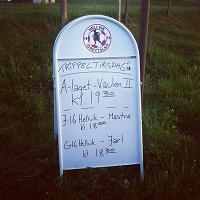 HELLVIK
TRIPPELTIRSDAG!
A-laget - Vaulen II
kl 19 30
J-16 Hellvik - Mastra
kl. 18 00
G16 Hellvik - Jarl
kl. 18 30